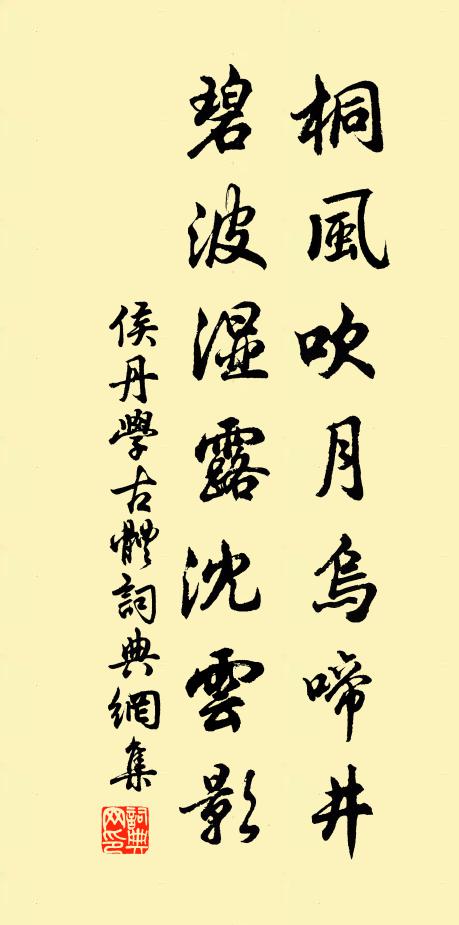 桐風吹月烏啼井
碧波濕露沈雲影
侯丹學古體詞典網集
詞典網印